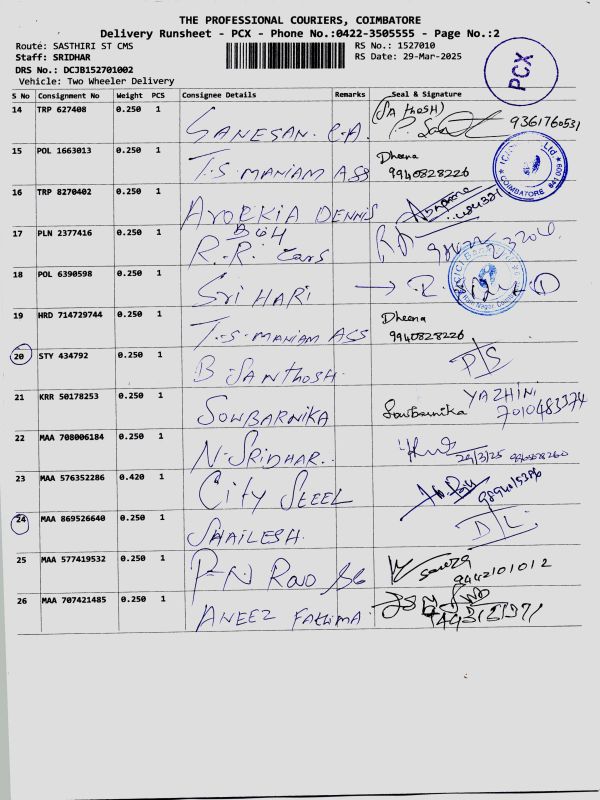 THE PROFESSIONAL COURIERS, COIMBATORE
Delivery Runsheet - PCX - Phone No.:0422-3505555 - Page No.:2
Route: SASTHIRI ST CMS
RS No.: 1527010
Staff: SRIDHAR
RS Date: 29-Mar-2025
DRS No.: DCJB152701002
Vehicle: Two Wheeler Delivery
PCX
S No Consignment No Weight PCS Consignee Details Remarks Seal & Signature
14 TRP 627408 0.250 1 GANESAN. C.A. (SAthoSH) 9361760531
15 POL 1663013 0.250 1 T.S. MANIAM ASS Dheena
9940828226
COIMBATORE 641 009
16 TRP 8270402 0.250 1 AROKKIA DENNIS
17 PLN 2377416 0.250 1 R.R. Cars
18 POL 6390598 0.250 1 Sri HARI
19 HRD 714729744 0.250 1 T.S. MANIAM ASS Dheena
9940828226
20 STY 434792 0.250 1 B SANthOSH. P/S
21 KRR 50178253 0.250 1 SOWBARNIKA Sowbarnika YAZHINI
7010483374
22 MAA 708006184 0.250 1 N. SRIDHAR.. 29/3/25
23 MAA 576352286 0.420 1 CITY STEEL
24 MAA 869526640 0.250 1 SHAILESH. D/L
25 MAA 577419532 0.250 1 P.N Rao 9442101012
26 MAA 707421485 0.250 1 ANEEZ FAthIMA.